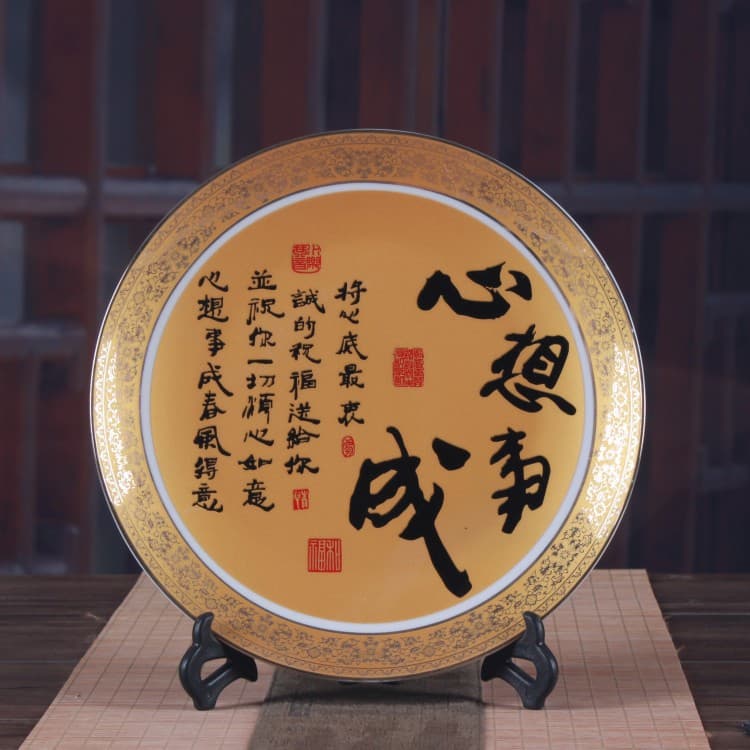 心想事
成
将心底最衷
誠的祝福送給你
並祝你一切順心如意
心想事成春風得意